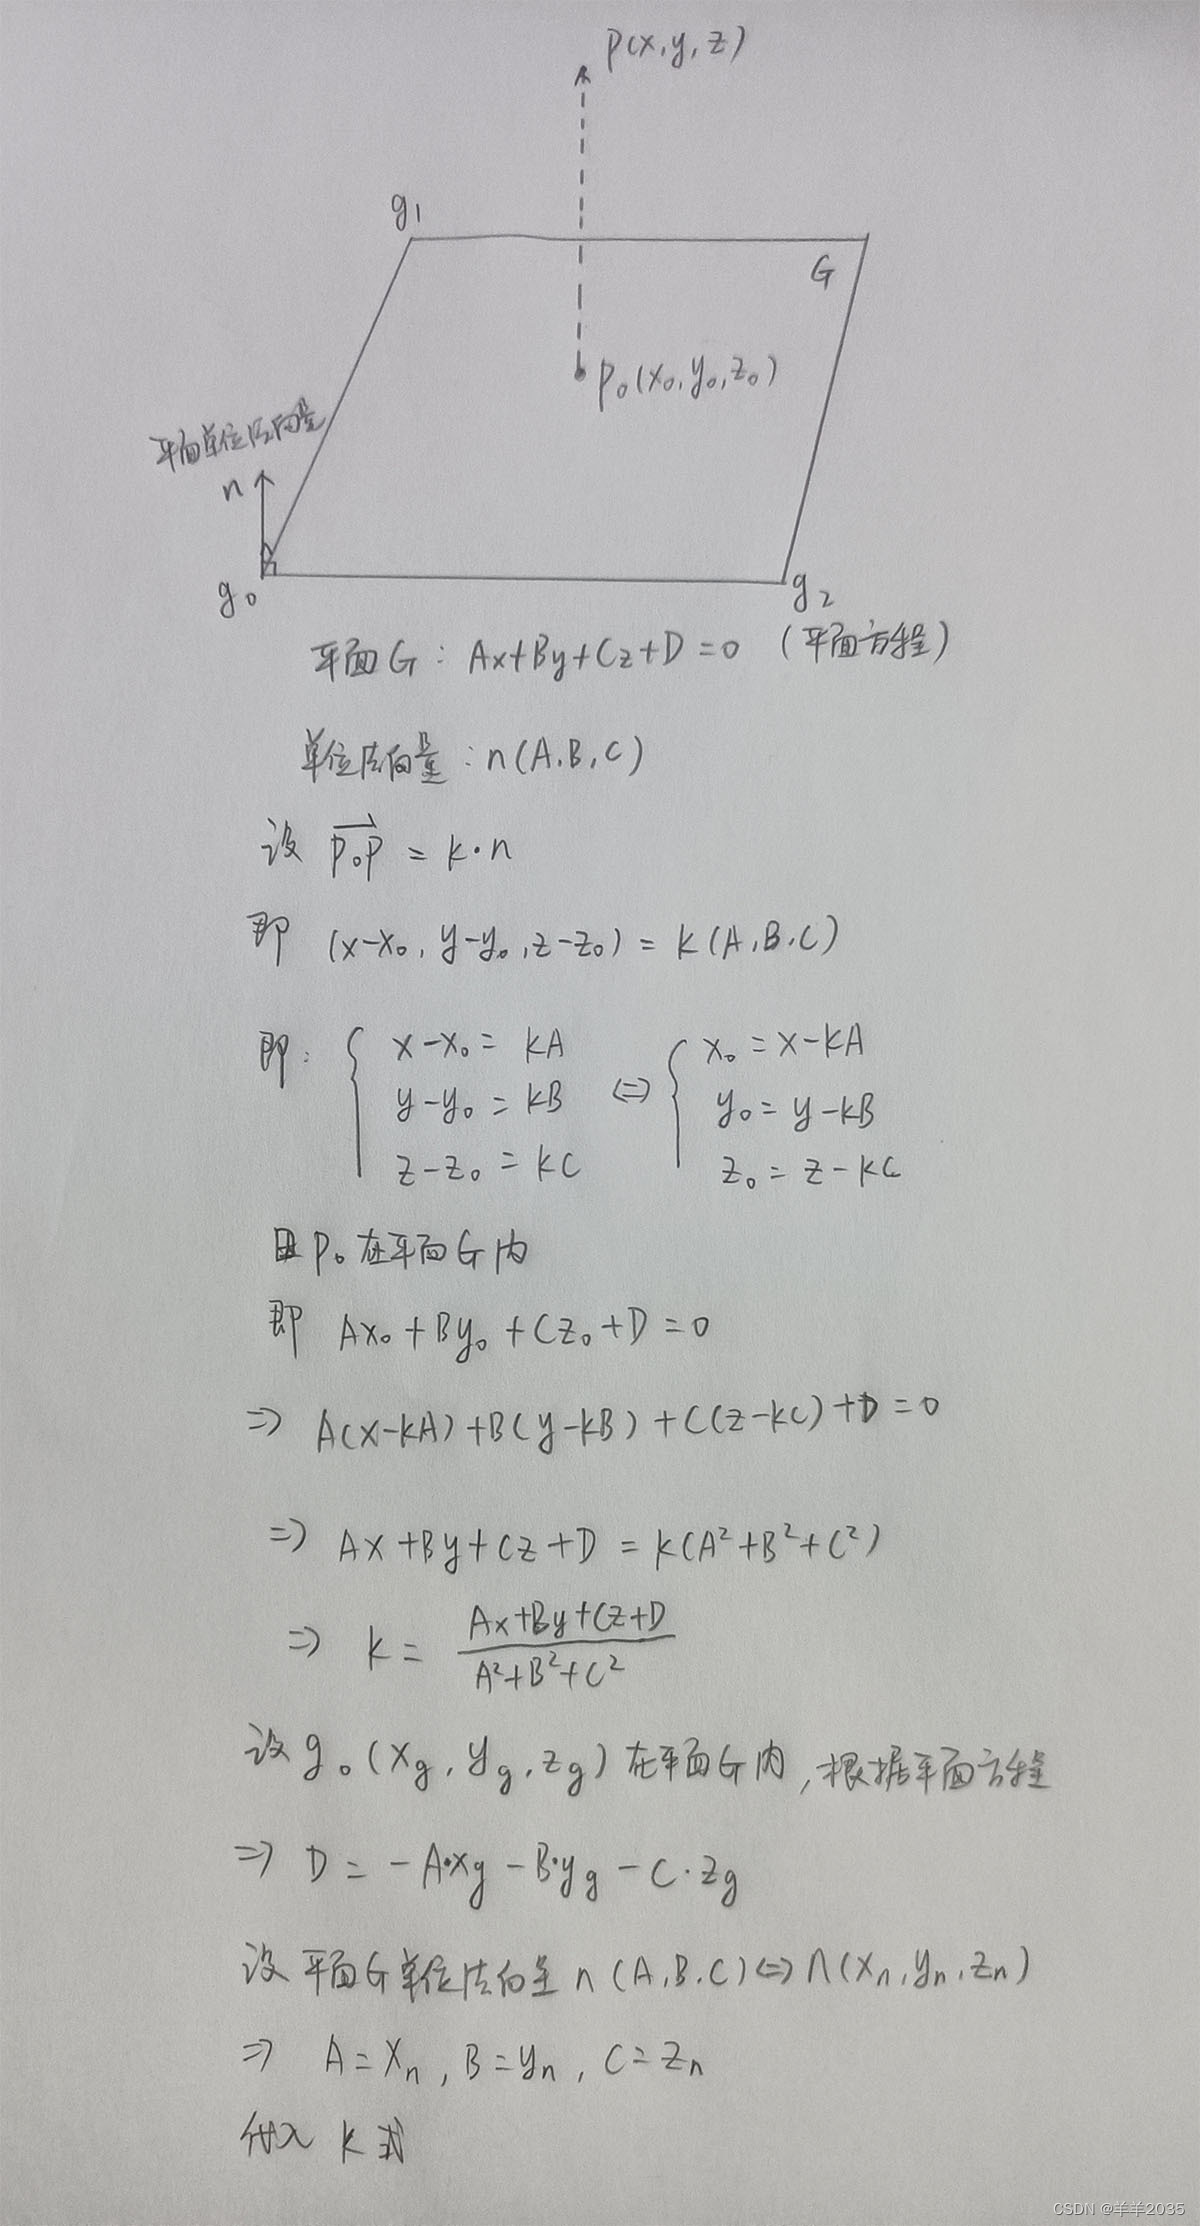 P(x,y,z)
g₁
G
P₀(x₀,y₀,z₀)
平面单位法向量
n
g₀
g₂
平面G: Ax+By+Cz+D=0 (平面方程)
单位法向量: n(A,B,C)
设 $\overrightarrow{P_0P}$ = k·n
即 (x-x₀, y-y₀, z-z₀) = k(A,B,C)
即: { x-x₀ = kA ⇔ { x₀ = x-kA
y-y₀ = kB y₀ = y-kB
z-z₀ = kC z₀ = z-kC
且P₀在平面G内
即 Ax₀+By₀+Cz₀+D=0
⇒ A(x-kA)+B(y-kB)+C(z-kC)+D=0
⇒ Ax+By+Cz+D = k(A²+B²+C²)
⇒ k = \frac{Ax+By+Cz+D}{A²+B²+C²}
设g₀(x_g, y_g, z_g)在平面G内,根据平面方程
⇒ D = -A·x_g - B·y_g - C·z_g
设平面G单位法向量n(A,B,C)⇔n(xₙ,yₙ,zₙ)
⇒ A=xₙ, B=yₙ, C=zₙ
代入 k 式
CSDN @羊羊2035